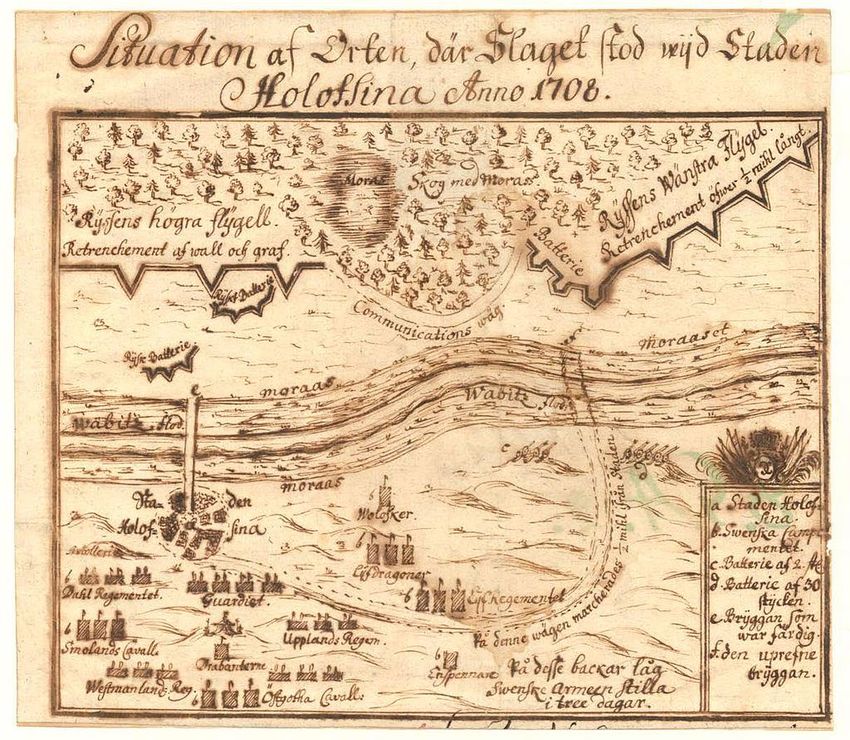 Situation af Orten, där Slaget stod wijd Staden
Holofsina Anno 1708.
Moras
Skog med Moras
Ryssens högra flygell.
Retrenchement af wall och graf.
Ryssens Wänstra Flygel.
Retrenchement öfwer ½ mihl långt.
Batterie
Rysk Batterie
Communications wäg
Rysk Batterie
e
moraas
moraaset
Wabitz flod.
Wabitz flod.
moraas
c
d
Sta- den
Holof- sina
Wolosker.
½ mihl ifrån Staden
Artollerie
b
Dahl Regementet.
Guardiet.
b
Lijfdragoner
b
Lijf Regementet
På denne wägen marcherades
b
Smolands Cavall.
Upplands Regem.
b
Trabanterne
Westmanlands Reg.
b
Östgotha Cavall:
b
Enspennare
På desse backar låg
Swenske Armeen stilla
i tree dagar.
a Staden Holof-
sina.
b. Swenska Campe-
mentet.
c. Batterie af 2. st
d. Batterie af 30
stycken.
e. Bryggan som
war färdig.
f. den uprefne
bryggan.